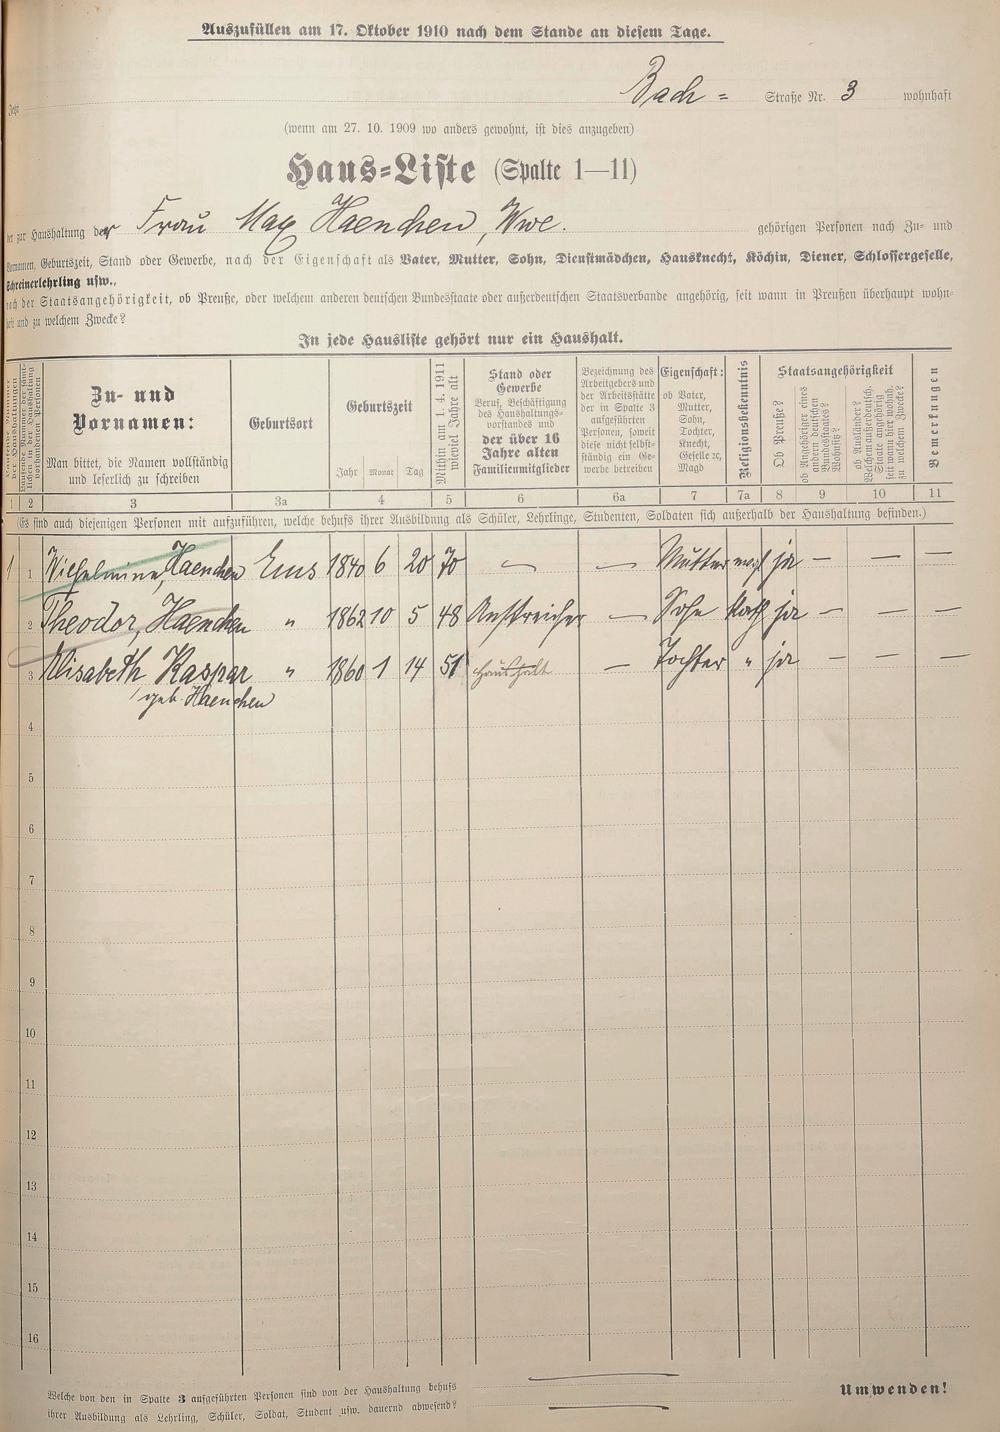 Auszufüllen am 17. Oktober 1910 nach dem Stande an diesem Tage.
Jetzt Bach = Straße Nr. 3 wohnhaft
(wenn am 27. 10. 1909 wo anders gewohnt, ist dies anzugeben)
Haus=Liste (Spalte 1—11)
der zur Haushaltung der Frau Max Haenchen, Wwe. gehörigen Personen nach Zu- und
Vornamen, Geburtszeit, Stand oder Gewerbe, nach der Eigenschaft als Vater, Mutter, Sohn, Dienstmädchen, Hausknecht, Köchin, Diener, Schlossergeselle,
Schreinerlehrling usw.,
nach der Staatsangehörigkeit, ob Preuße, oder welchem anderen deutschen Bundesstaate oder außerdeutschen Staatsverbande angehörig, seit wann in Preußen überhaupt wohn-
haft und zu welchem Zwecke?
In jede Hausliste gehört nur ein Haushalt.
Laufende Nummer der Haushaltungen
Laufende Nummer der sämt-
lichen in der Haushaltung
vorhandenen Personen
Zu- und
Vornamen:
Man bittet, die Namen vollständig
und leserlich zu schreiben
Geburtsort
Geburtszeit
Jahr Monat Tag
Mithin am 1. 4. 1911
wieviel Jahre alt
Stand oder
Gewerbe
Beruf, Beschäftigung
des Haushaltungs-
vorstandes und
der über 16
Jahre alten
Familienmitglieder
Bezeichnung des
Arbeitgebers und
der Arbeitsstätte
der in Spalte 3
aufgeführten
Personen, soweit
diese nicht selbst-
ständig ein Ge-
werbe betreiben
Eigenschaft:
ob Vater,
Mutter,
Sohn,
Tochter,
Knecht,
Geselle ec,
Magd
Religionsbekenntnis
Staatsangehörigkeit
Ob Preuße?
ob Angehöriger eines
andern deutschen
Bundesstaates?
Wohnsitz?
ob Ausländer?
Welchem außerdeutsch.
Staate angehörig
seit wann hier wohnh.
zu welchem Zwecke?
Bemerkungen
1 2 3 3a 4 5 6 6a 7 7a 8 9 10 11
(Es sind auch diejenigen Personen mit aufzuführen, welche behufs ihrer Ausbildung als Schüler, Lehrlinge, Studenten, Soldaten sich außerhalb der Haushaltung befinden.)
1 1 Wilhelmine, Haenchen Ems 1840 6 20 70 — — Mutter ja — — —
2 Theodor, Haenchen " 1862 10 5 48 Anstreicher — Sohn kath ja — — —
3 Elisabeth Kaspar " 1860 1 14 51 Haushalt — Tochter " ja — — —
geb. Haenchen
4
5
6
7
8
9
10
11
12
13
14
15
16
Welche von den in Spalte 3 aufgeführten Personen sind von der Haushaltung behufs
ihrer Ausbildung als Lehrling, Schüler, Soldat, Student usw. dauernd abwesend?
Umwenden!